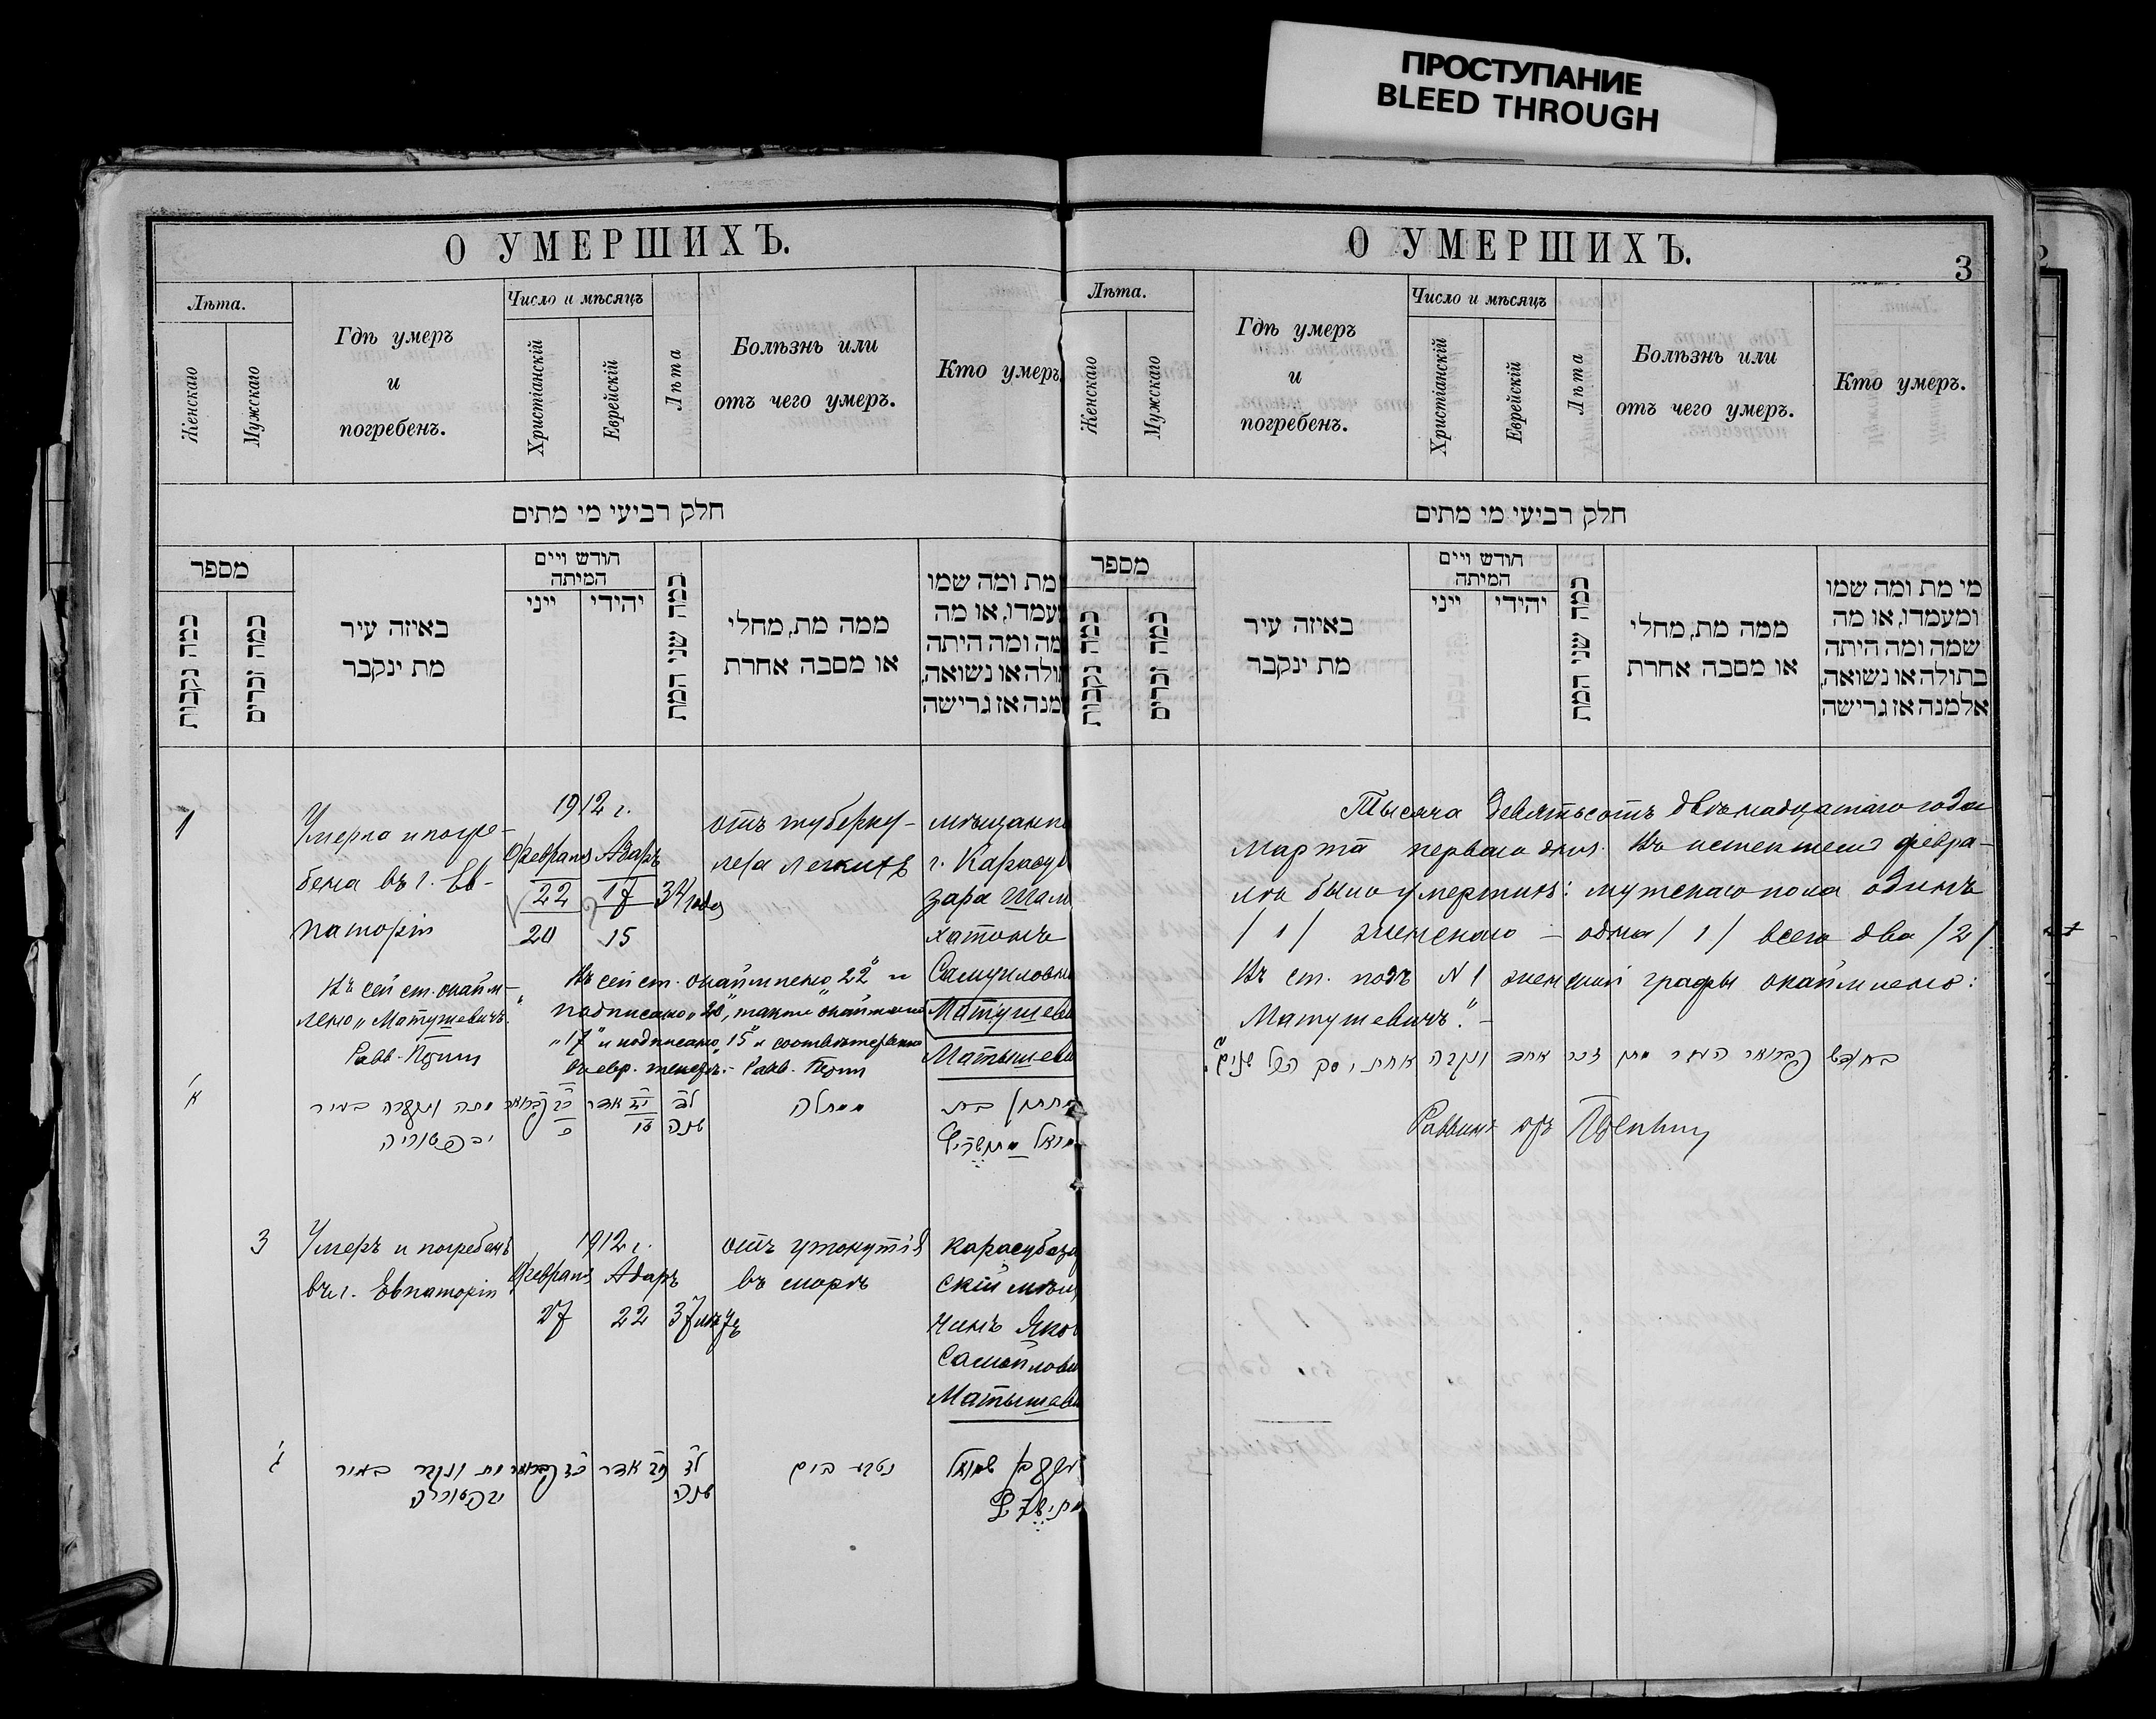 ПРОСТУПАНИЕ
BLEED THROUGH
О УМЕРШИХЪ.
Лѣта.
Женскаго
Мужскаго
Гдѣ умеръ
и
погребенъ.
Число и мѣсяцъ
Христіанскій
Еврейскій
Лѣта
Болѣзнь или
отъ чего умеръ.
Кто умеръ.
חלק רביעי מי מתים
מספר
כמה נקבות
כמה זכרים
באיזה עיר
מת ינקבר
חודש ויים
המיתה
ייני
יהידי
כמה שני המת
ממה מת, מחלי
או מסבה אחרת
מת ומה שמו
עמדו, או מה
מה ומה היתה
ולה או נשואה,
מנה אז גרישה
1
Умерла и погре-
бена въ г. Ев-
паторіи
1912 г.
Февраля Адаръ
22 17
20 15
34 года
отъ туберку-
леза легкихъ
мѣщанка
г. Карасуб
зара Шам
хатонъ
Самуиловна
Матушеви
Матышеви
Въ сей ст. окайм-
лено „Матушевичъ“.
Равв.
Въ сей ст. окаймлено „22“ и
надписано „20“, также окаймлено
„17“ и надписано „15“ и соотвѣтственно
въ евр. текстѣ. – Равв.
א
מתה ונקברה בעיר
יבפטוריה
אדר
שנה
ממחלה
בת
3
Умеръ и погребенъ
въ г. Евпаторіи
1912 г.
Февраля Адаръ
27 22
37 лѣтъ
отъ утонутія
въ морѣ
Карасубаза
скій мѣщ
чинъ Яков
Самойлови
Матышеви
ג
מת ונקבר בעיר
יבפטוריה
כב אדר
לז
שנה
נטבע בים
שמואל
О УМЕРШИХЪ.
3
Лѣта.
Женскаго
Мужскаго
Гдѣ умеръ
и
погребенъ.
Число и мѣсяцъ
Христіанскій
Еврейскій
Лѣта
Болѣзнь или
отъ чего умеръ.
Кто умеръ.
חלק רביעי מי מתים
מספר
כמה נקבות
כמה זכרים
באיזה עיר
מת ינקבר
חודש ויים
המיתה
ייני
יהידי
כמה שני המת
ממה מת, מחלי
או מסבה אחרת
מי מת ומה שמו
ומעמדו, או מה
שמה ומה היתה
בתולה או נשואה,
אלמנה אז גרישה
Тысяча девятьсотъ двѣнадцатаго года
марта перваго дня. Въ истекшемъ февра-
лѣ было умершихъ: мужскаго пола одинъ
/1/ женскаго – одна /1/ всего два /2/.
Въ ст. подъ № 1 женской графы окаймлено:
„Матушевичъ“. –
בחודש פברואר העבר מת זכר אחד ונקבה אחת, סך הכל שנים
Раввинъ